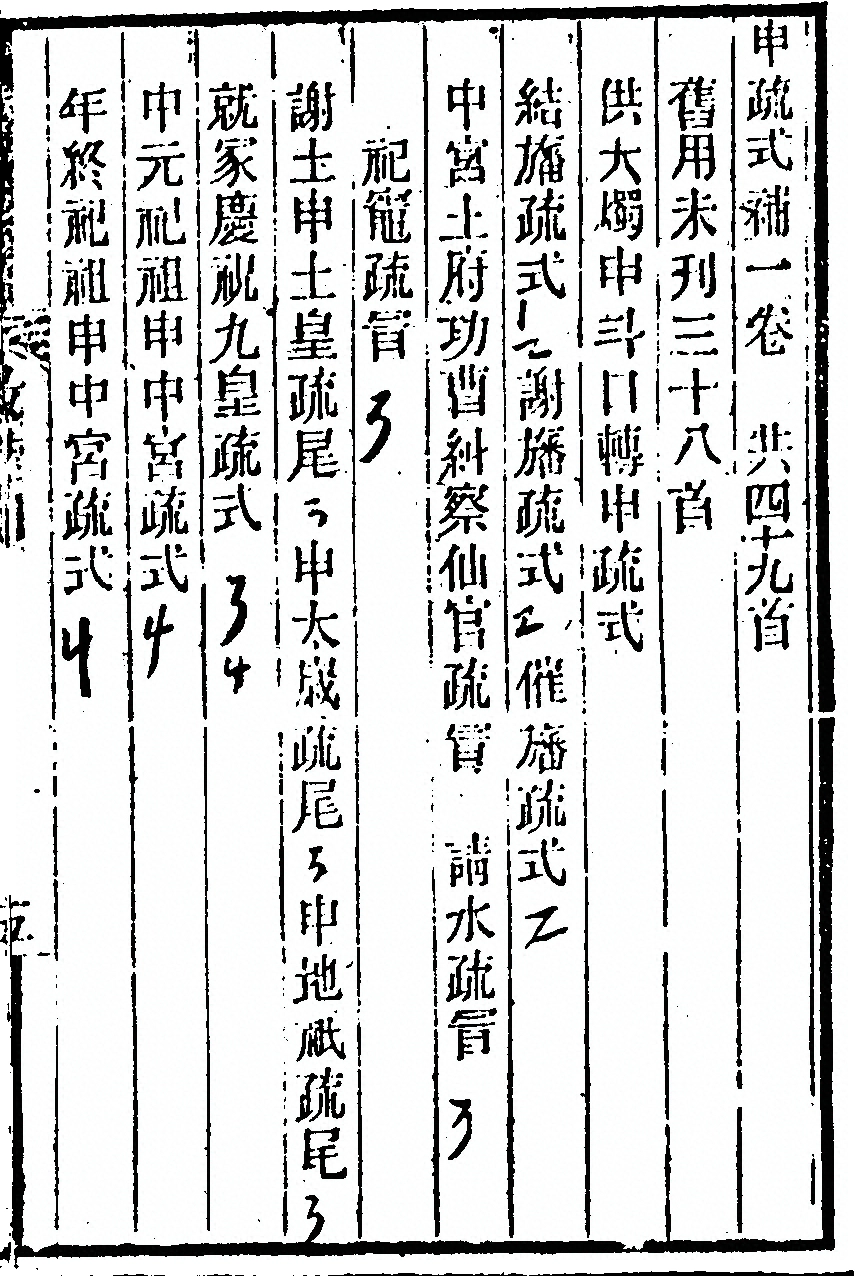 申疏式補一卷　共四十九首
舊用未刊三十八首
供大燭申斗口轉申疏式
結旛疏式 1 2 謝旛疏式 2 催旛疏式 2
中宮土府功曹糾察仙官疏冒　請水疏冒 3
祀竈疏冒 3
謝土申土皇疏尾 3 申太歲疏尾 3 申地祇疏尾 3
就家慶祝九皇疏式 3 4
中元祀祖申中宮疏式 4
年終祀祖申中宮疏式 4
五